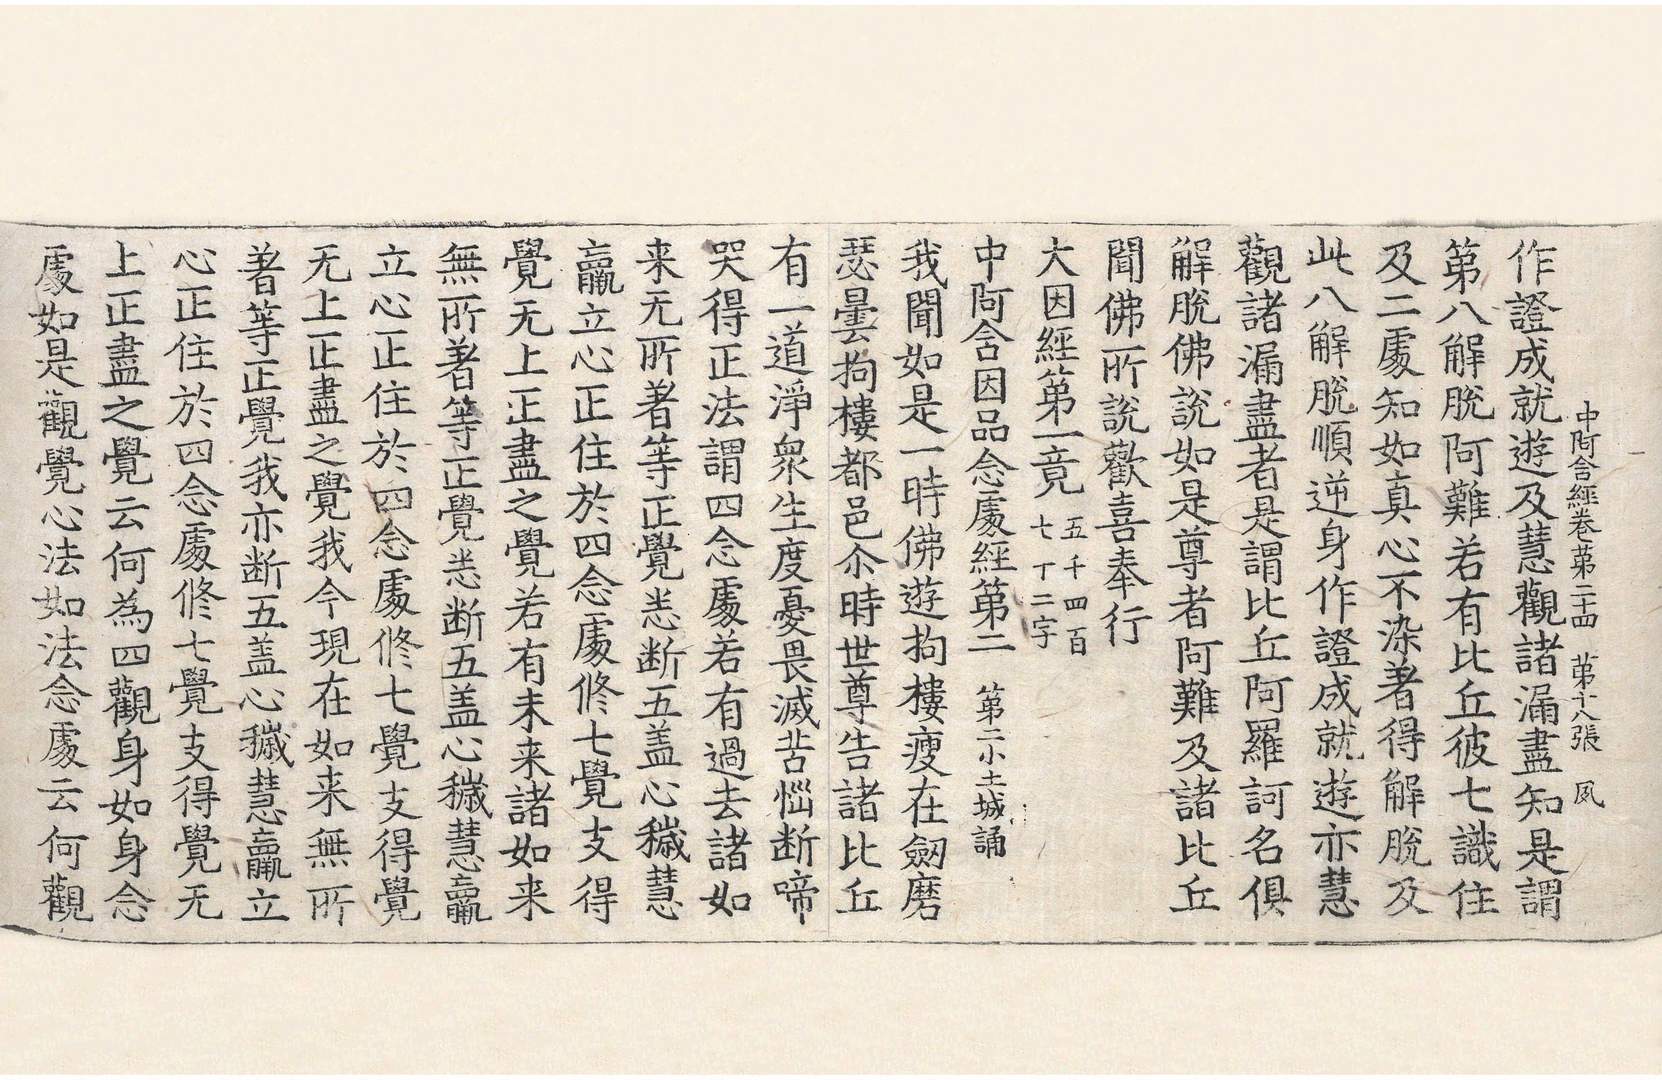 中阿含經卷第二十四　第十八張　夙
作證成就遊及慧觀諸漏盡知是謂
第八解脫阿難若有比丘彼七識住
及二處知如真心不染著得解脫及
此八解脫順逆身作證成就遊亦慧
觀諸漏盡者是謂比丘阿羅訶名俱
解脫佛說如是尊者阿難及諸比丘
聞佛所說歡喜奉行
大因經第一竟　五千四百七十二字
中阿含因品念處經第二　第二小土城誦
我聞如是一時佛遊拘樓瘦在劒磨
瑟曇拘樓都邑尒時世尊告諸比丘
有一道淨衆生度憂畏滅苦惱断啼
哭得正法謂四念處若有過去諸如
来无所著等正覺悉断五盖心穢慧
羸立心正住於四念處修七覺支得
覺无上正盡之覺若有未来諸如来
無所著等正覺悉断五盖心穢慧羸
立心正住於四念處修七覺支得覺
无上正盡之覺我今現在如来無所
著等正覺我亦断五盖心穢慧羸立
心正住於四念處修七覺支得覺无
上正盡之覺云何為四觀身如身念
處如是觀覺心法如法念處云何觀